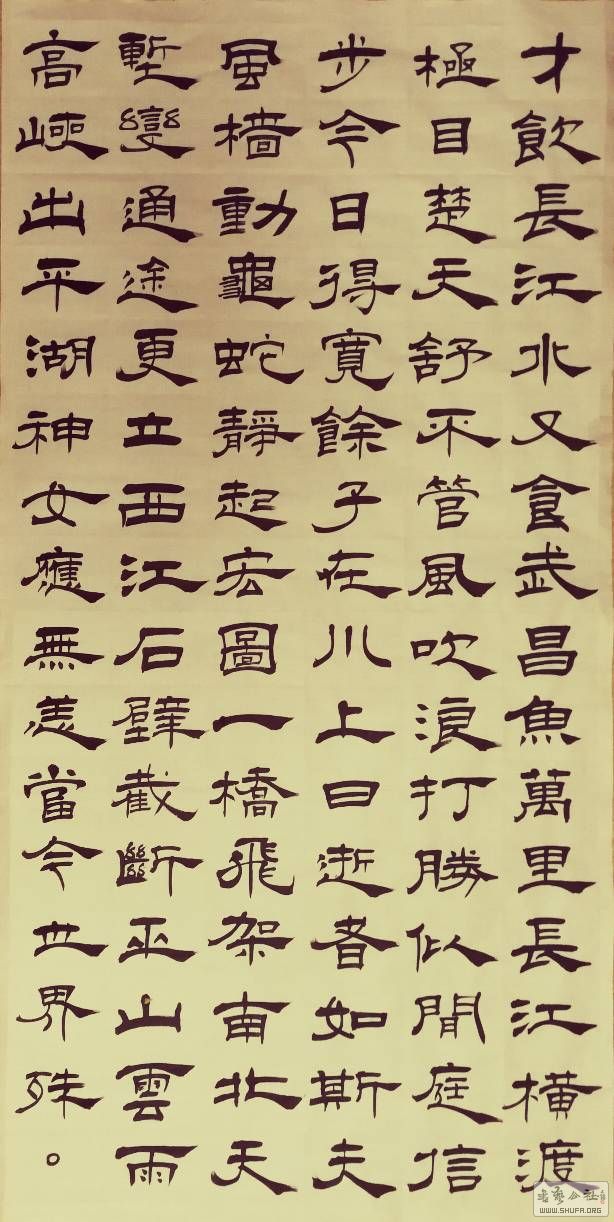 才飲長江水又食武昌魚萬里長江橫渡
極目楚天舒不管風吹浪打勝似閒庭信
步今日得寬餘子在川上曰逝者如斯夫
風檣動龜蛇靜起宏圖一橋飛架南北天
塹變通途更立西江石壁截斷巫山雲雨
高峽出平湖神女應無恙當今世界殊。
WWW.SHUFA.ORG